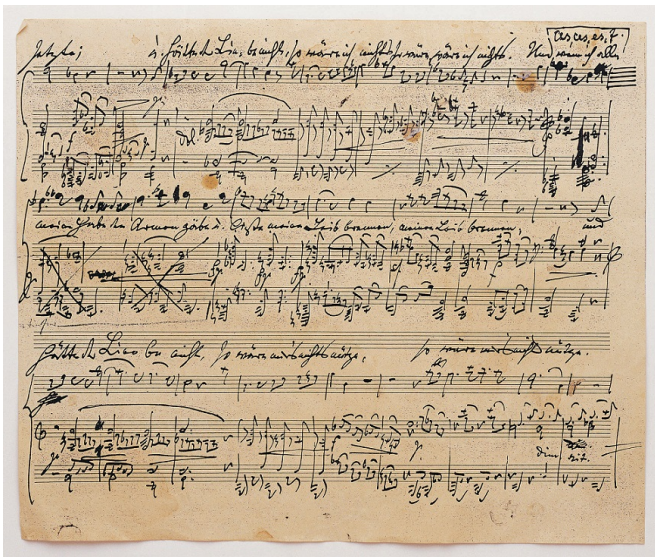 setzte; u. hätte d. Liebe nicht, so wäre ich nichts, so wäre, wäre ich nichts. Und wenn ich alle
dol.
meine Habe den Armen gäbe u. ließe meinen Leib brennen, meinen Leib brennen, und
hätte d. Liebe nicht, so wäre mirs nichts nütze, so wäre mirs nichts nütze.
dim rit.